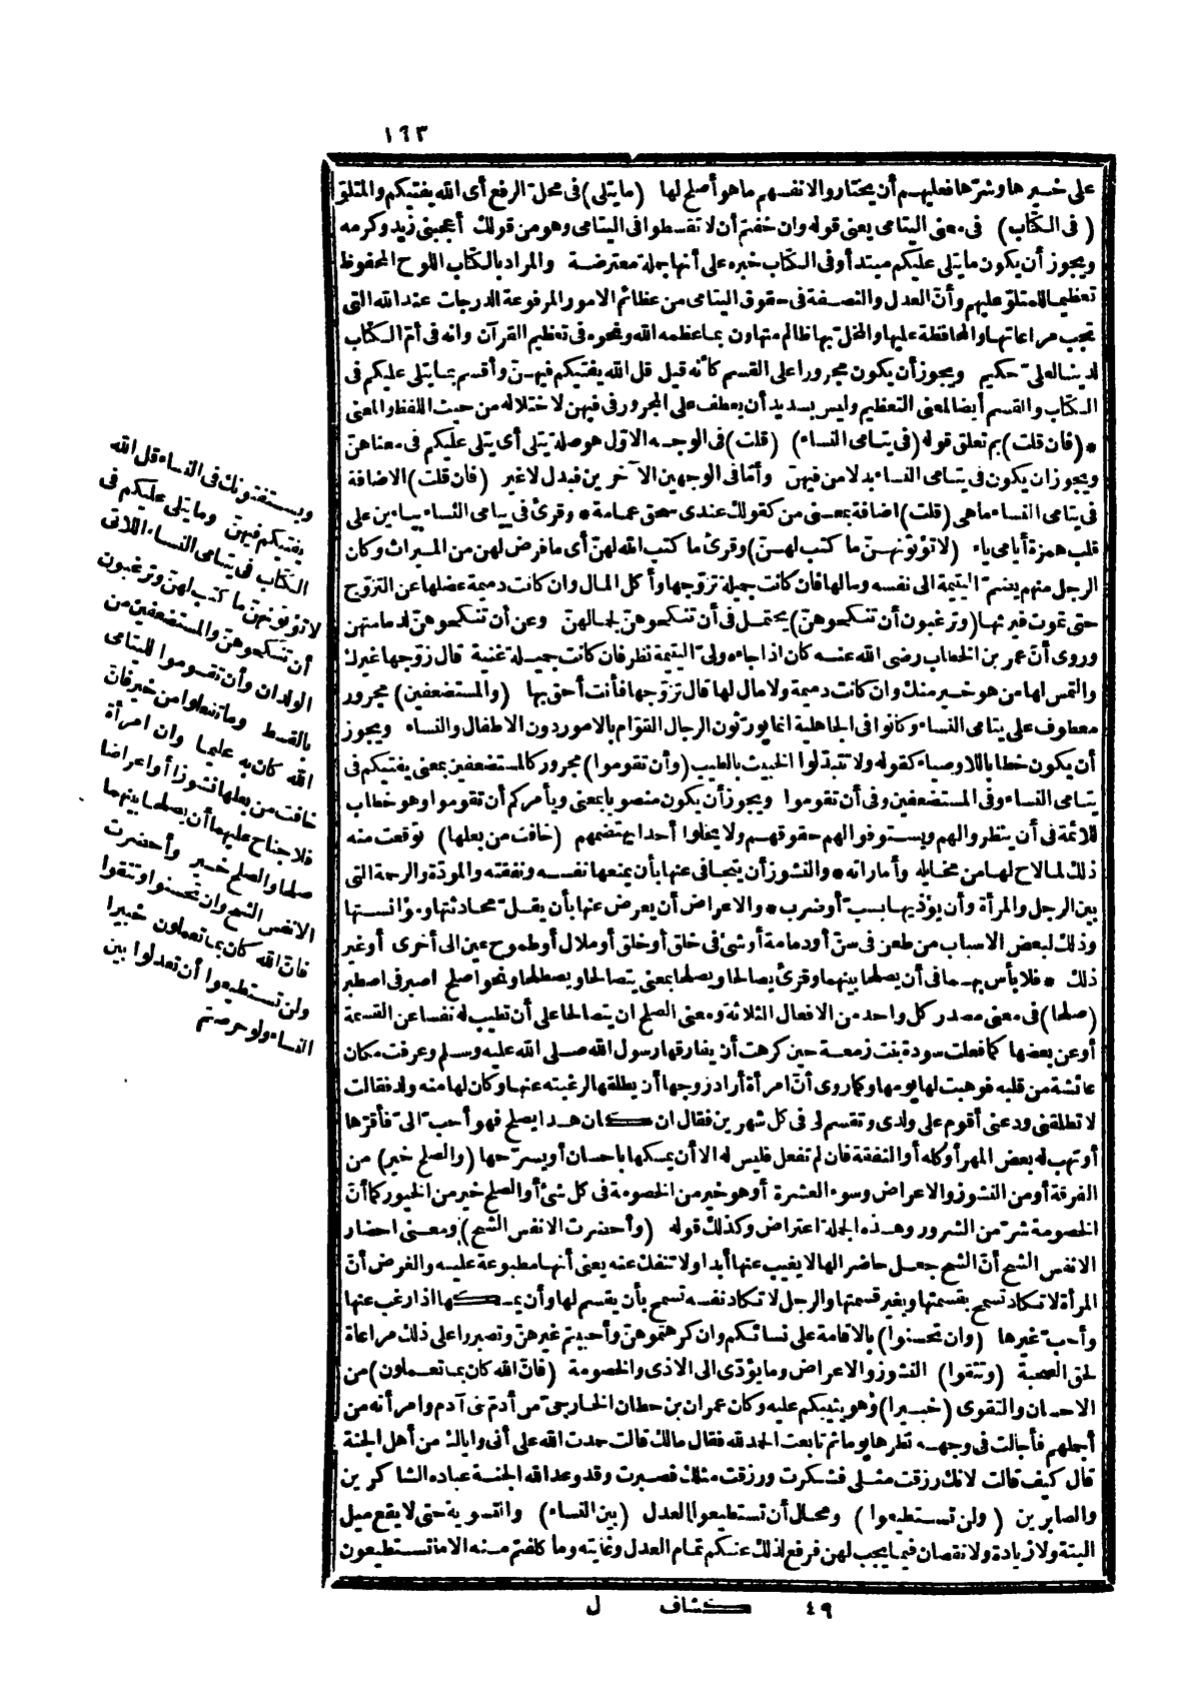 ١٩٣
على خيرها وشرّها فعليهم أن يختاروا لانفسهم ما هو أصلح لها (ما يتلى) فى محلّ الرفع أى الله يفتيكم والمتلوّ
(فى الكتاب) فى معنى اليتامى يعنى قوله وان خفتم أن لا تقسطوا فى اليتامى وهو من قولك أعجبنى زيد وكرمه
ويجوز أن يكون ما يتلى عليكم مبتدأ وفى الكتاب خبره على أنها جملة معترضة والمراد بالكتاب اللوح المحفوظ
تعظيما للمتلوّ عليهم وأنّ العدل والنصفة فى حقوق اليتامى من عظائم الامور المرفوعة الدرجات عند الله التى
تجب مراعاتها والمحافظة عليها والمخلّ بها ظالم متهاون بما عظمه الله ونحوه فى تعظيم القرآن وانه فى أمّ الكتاب
لدينا لعلىّ حكيم ويجوز أن يكون مجرورا على القسم كأنه قيل قل الله يفتيكم فيهنّ وأقسم بما يتلى عليكم فى
الكتاب والقسم أيضا لمعنى التعظيم وليس بسديد أن يعطف على المجرور فى فيهن لاختلاله من حيث اللفظ والمعنى
* (فان قلت) بم تعلق قوله (فى يتامى النساء) (قلت) فى الوجه الاوّل هو صلة يتلى أى يتلى عليكم فى معناهنّ
ويجوز ان يكون فى يتامى النساء بدلا من فيهنّ وأمّا فى الوجهين الآخرين فبدل لا غير (فان قلت) الاضافة
فى يتامى النساء ما هى (قلت) اضافة بمعنى من كقولك عندى سحق عمامة * وقرئ فى ييامى النساء بياءين على
قلب همزة أيامى ياء (لا تؤتونهنّ ما كتب لهنّ) وقرئ ما كتب الله لهنّ أى ما فرض لهن من الميراث وكان
الرجل منهم يضمّ اليتيمة الى نفسه ومالها فان كانت جميلة تزوّجها وأكل المال وان كانت دميمة عضلها عن التزوّج
حتى تموت فيرثها (وترغبون أن تنكحوهنّ) يحتمل فى أن تنكحوهنّ لجمالهنّ وعن أن تنكحوهنّ لدمامتهن
وروى أنّ عمر بن الخطاب رضى الله عنه كان اذا جاءه ولىّ اليتيمة نظر فان كانت جميلة غنية قال زوّجها غيرك
والتمس لها من هو خير منك وان كانت دميمة ولا مال لها قال تزوّجها فأنت أحق بها (والمستضعفين) مجرور
معطوف على يتامى النساء وكانوا فى الجاهلية انما يورّثون الرجال القوّام بالامور دون الاطفال والنساء ويجوز
أن يكون خطابا للاوصياء كقوله ولا تتبدلوا الخبيث بالطيب (وأن تقوموا) مجرور كالمستضعفين بمعنى يفتيكم فى
يتامى النساء وفى المستضعفين وفى أن تقوموا ويجوز أن يكون منصوبا بمعنى ويأمركم أن تقوموا وهو خطاب
للائمة فى أن ينظروا لهم ويستوفوا لهم حقوقهم ولا يخلوا أحدا يهتضمهم (خافت من بعلها) توقعت منه
ذلك لما لاح لها من مخايله وأماراته * والنشوز أن يتجافى عنها بأن يمنعها نفسه ونفقته والمودّة والرحمة التى
بين الرجل والمرأة وأن يؤذيها بسب أو ضرب * والاعراض أن يعرض عنها بأن يقلّ محادثتها ومؤانستها
وذلك لبعض الاسباب من طعن فى سنّ أو دمامة أو شئ فى خلق أو خلق أو ملال أو طموح عين الى أخرى أو غير
ذلك * فلا بأس بهما فى أن يصلحا بينهما وقرئ يصالحا ويصلحا بمعنى يتصالحا ويصطلحا ونحو اصلح اصبر فى اصطبر
(صلحا) فى معنى مصدر كل واحد من الافعال الثلاثة ومعنى الصلح ان يتصالحا على أن تطيب له نفسا عن القسمة
أو عن بعضها كما فعلت سودة بنت زمعة حين كرهت أن يفارقها رسول الله صلى الله عليه وسلم وعرفت مكان
عائشة من قلبه فوهبت لها يومها وكما روى أنّ امرأة أراد زوجها أن يطلقها لرغبته عنها وكان لها منه ولد فقالت
لا تطلقنى ودعنى أقوم على ولدى وتقسم لى فى كل شهرين فقال ان كان هذا يصلح فهو أحب الىّ فأقرّها
أو تهب له بعض المهر أو كله أو النفقة فان لم تفعل فليس له الا أن يمسكها باحسان أو يسرّحها (والصلح خير) من
الفرقة أو من النشوز والاعراض وسوء العشرة أو هو خير من الخصومة فى كل شئ أو الصلح خير من الخيور كما أنّ
الخصومة شرّ من الشرور وهذه الجملة اعتراض وكذلك قوله (وأحضرت الانفس الشح) ومعنى احضار
الانفس الشح أنّ الشح جعل حاضرا لها لا يغيب عنها أبدا ولا تنفك عنه يعنى أنها مطبوعة عليه والغرض أنّ
المرأة لا تكاد تسمح بقسمتها وبغير قسمتها والرجل لا تكاد نفسه تسمح بأن يقسم لها وأن يمسكها اذا رغب عنها
وأحبّ غيرها (وان تحسنوا) بالاقامة على نسائكم وان كرهتموهنّ وأحببتم غيرهنّ وتصبروا على ذلك مراعاة
لحق الصحبة (وتتقوا) النشوز والاعراض وما يؤدّى الى الاذى والخصومة (فانّ الله كان بما تعملون) من
الاحسان والتقوى (خبيرا) وهو يثيبكم عليه وكان عمران بن حطان الخارجىّ من أدمّ بنى آدم وامرأته من
أجملهم فأجالت فى وجهه نظرها يوما ثم تابعت الحمد لله فقال مالك قالت حمدت الله على أنى واياك من أهل الجنة
قال كيف قالت لانك رزقت مثلى فشكرت ورزقت مثلك فصبرت وقد وعد الله الجنة عباده الشاكرين
والصابرين (ولن تستطيعوا) ومحال أن تستطيعوا العدل (بين النساء) والتسوية حتى لا يقع ميل
البتة ولا زيادة ولا نقصان فيما يجب لهن فرفع لذلك عنكم تمام العدل وغايته وما كلفتم منه الا ما تستطيعون
ويستفتونك فى النساء قل الله
يفتيكم فيهنّ وما يتلى عليكم فى
الكتاب فى يتامى النساء اللاتى
لا تؤتونهنّ ما كتب لهنّ وترغبون
أن تنكحوهنّ والمستضعفين من
الولدان وأن تقوموا لليتامى
بالقسط وما تفعلوا من خير فانّ
الله كان به عليما وان امرأة
خافت من بعلها نشوزا أو اعراضا
فلا جناح عليهما أن يصلحا بينهما
صلحا والصلح خير وأحضرت
الانفس الشح وان تحسنوا وتتقوا
فانّ الله كان بما تعملون خبيرا
ولن تستطيعوا أن تعدلوا بين
النساء ولو حرصتم
٤٩ كشاف ل